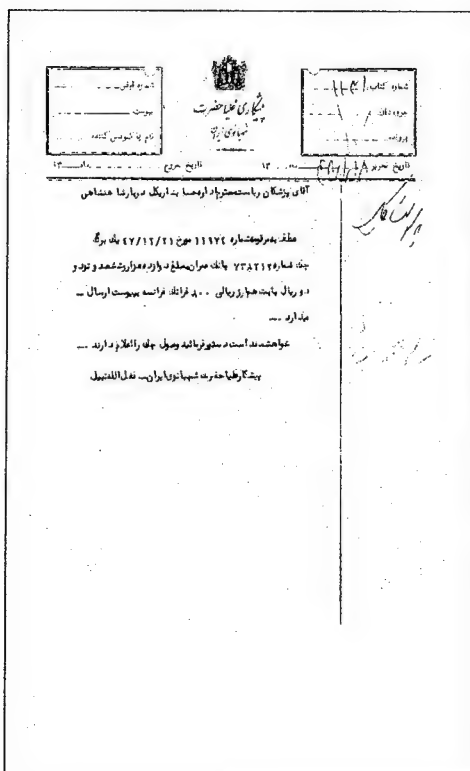 شماره کتاب
جزوه‌دان
پرونده
پیشکاری علیاحضرت
شهبانوی ایران
شماره قبلی
پیوست
نام پاکنویس کننده
تاریخ تحریر
تاریخ خروج ماه ۱۳
آقای پزشکان ریاست محترم اداره حسابداری کل دربار شاهنشاهی
عطف به مرقومه شماره ۱۱۹۷۴ مورخ ۴۷/۱۲/۲۱ یک برگ
چک شماره ۷۳۸۲۱۲ بانک عمران مبلغ دوازده هزار و ششصد و نود و
دو ریال بابت هم ارز ریالی فرانک فرانسه به پیوست ارسال —
میدارد —
خواهشمند است دستور فرمائید وصول چک را اعلام دارند —
پیشکار علیاحضرت شهبانوی ایران — فضل الله نبیل